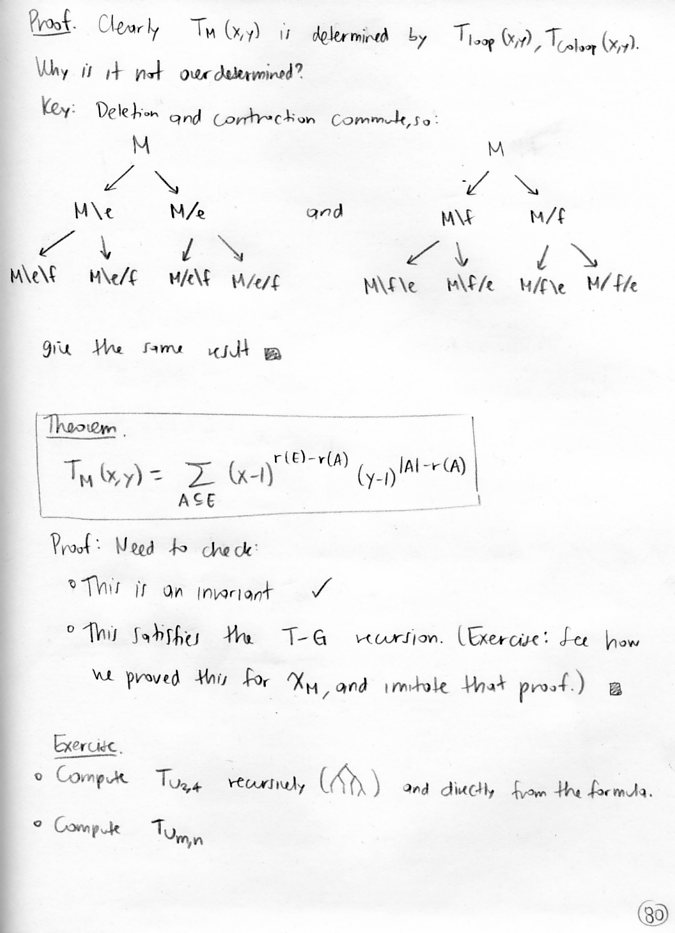 Proof. Clearly T_M(x,y) is determined by T_loop(x,y), T_coloop(x,y).
Why is it not overdetermined?
Key: Deletion and contraction commute, so:
M M
M\e M/e and M\f M/f
M\e\f M\e/f M/e\f M/e/f M\f\e M\f/e M/f\e M/f/e
give the same result
Theorem.
T_M(x,y) = Σ_{A⊆E} (x-1)^{r(E)-r(A)} (y-1)^{|A|-r(A)}
Proof: Need to check:
• This is an invariant ✓
• This satisfies the T-G recursion. (Exercise: See how
we proved this for χ_M, and imitate that proof.)
Exercise.
• Compute T_{U_{2,4}} recursively ( ) and directly from the formula.
• Compute T_{U_{m,n}}
80